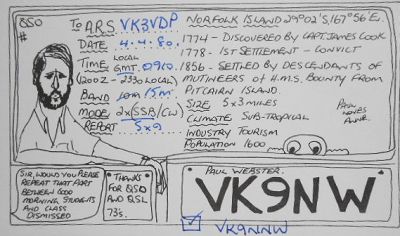 QSO
#
To A.R.S. VK3VDP
DATE 4.4.80.
TIME LOCAL GMT. 0910.
(2002 - 2330 LOCAL)
BAND 10m 15m
MODE 2x(SSB/CW)
REPORT 5x9
NORFOLK ISLAND 29°02'S,167°56'E.
1774 - DISCOVERED BY CAPT. JAMES COOK
1778 - 1ST SETTLEMENT - CONVICT
1856 - SETTLED BY DESCENDANTS OF
MUTINEERS OF H.M.S. BOUNTY FROM
PITCAIRN ISLAND.
SIZE 5x3 MILES
CLIMATE SUB-TROPICAL
INDUSTRY TOURISM
POPULATION 1600
PAUL
LOVES
SIR, WOULD YOU PLEASE
REPEAT THAT PART
BETWEEN GOOD
MORNING STUDENTS
AND CLASS
DISMISSED
THANKS
FOR QSO
AND QSL
73s.
PAUL WEBSTER.
VK9NW
VK9NNW